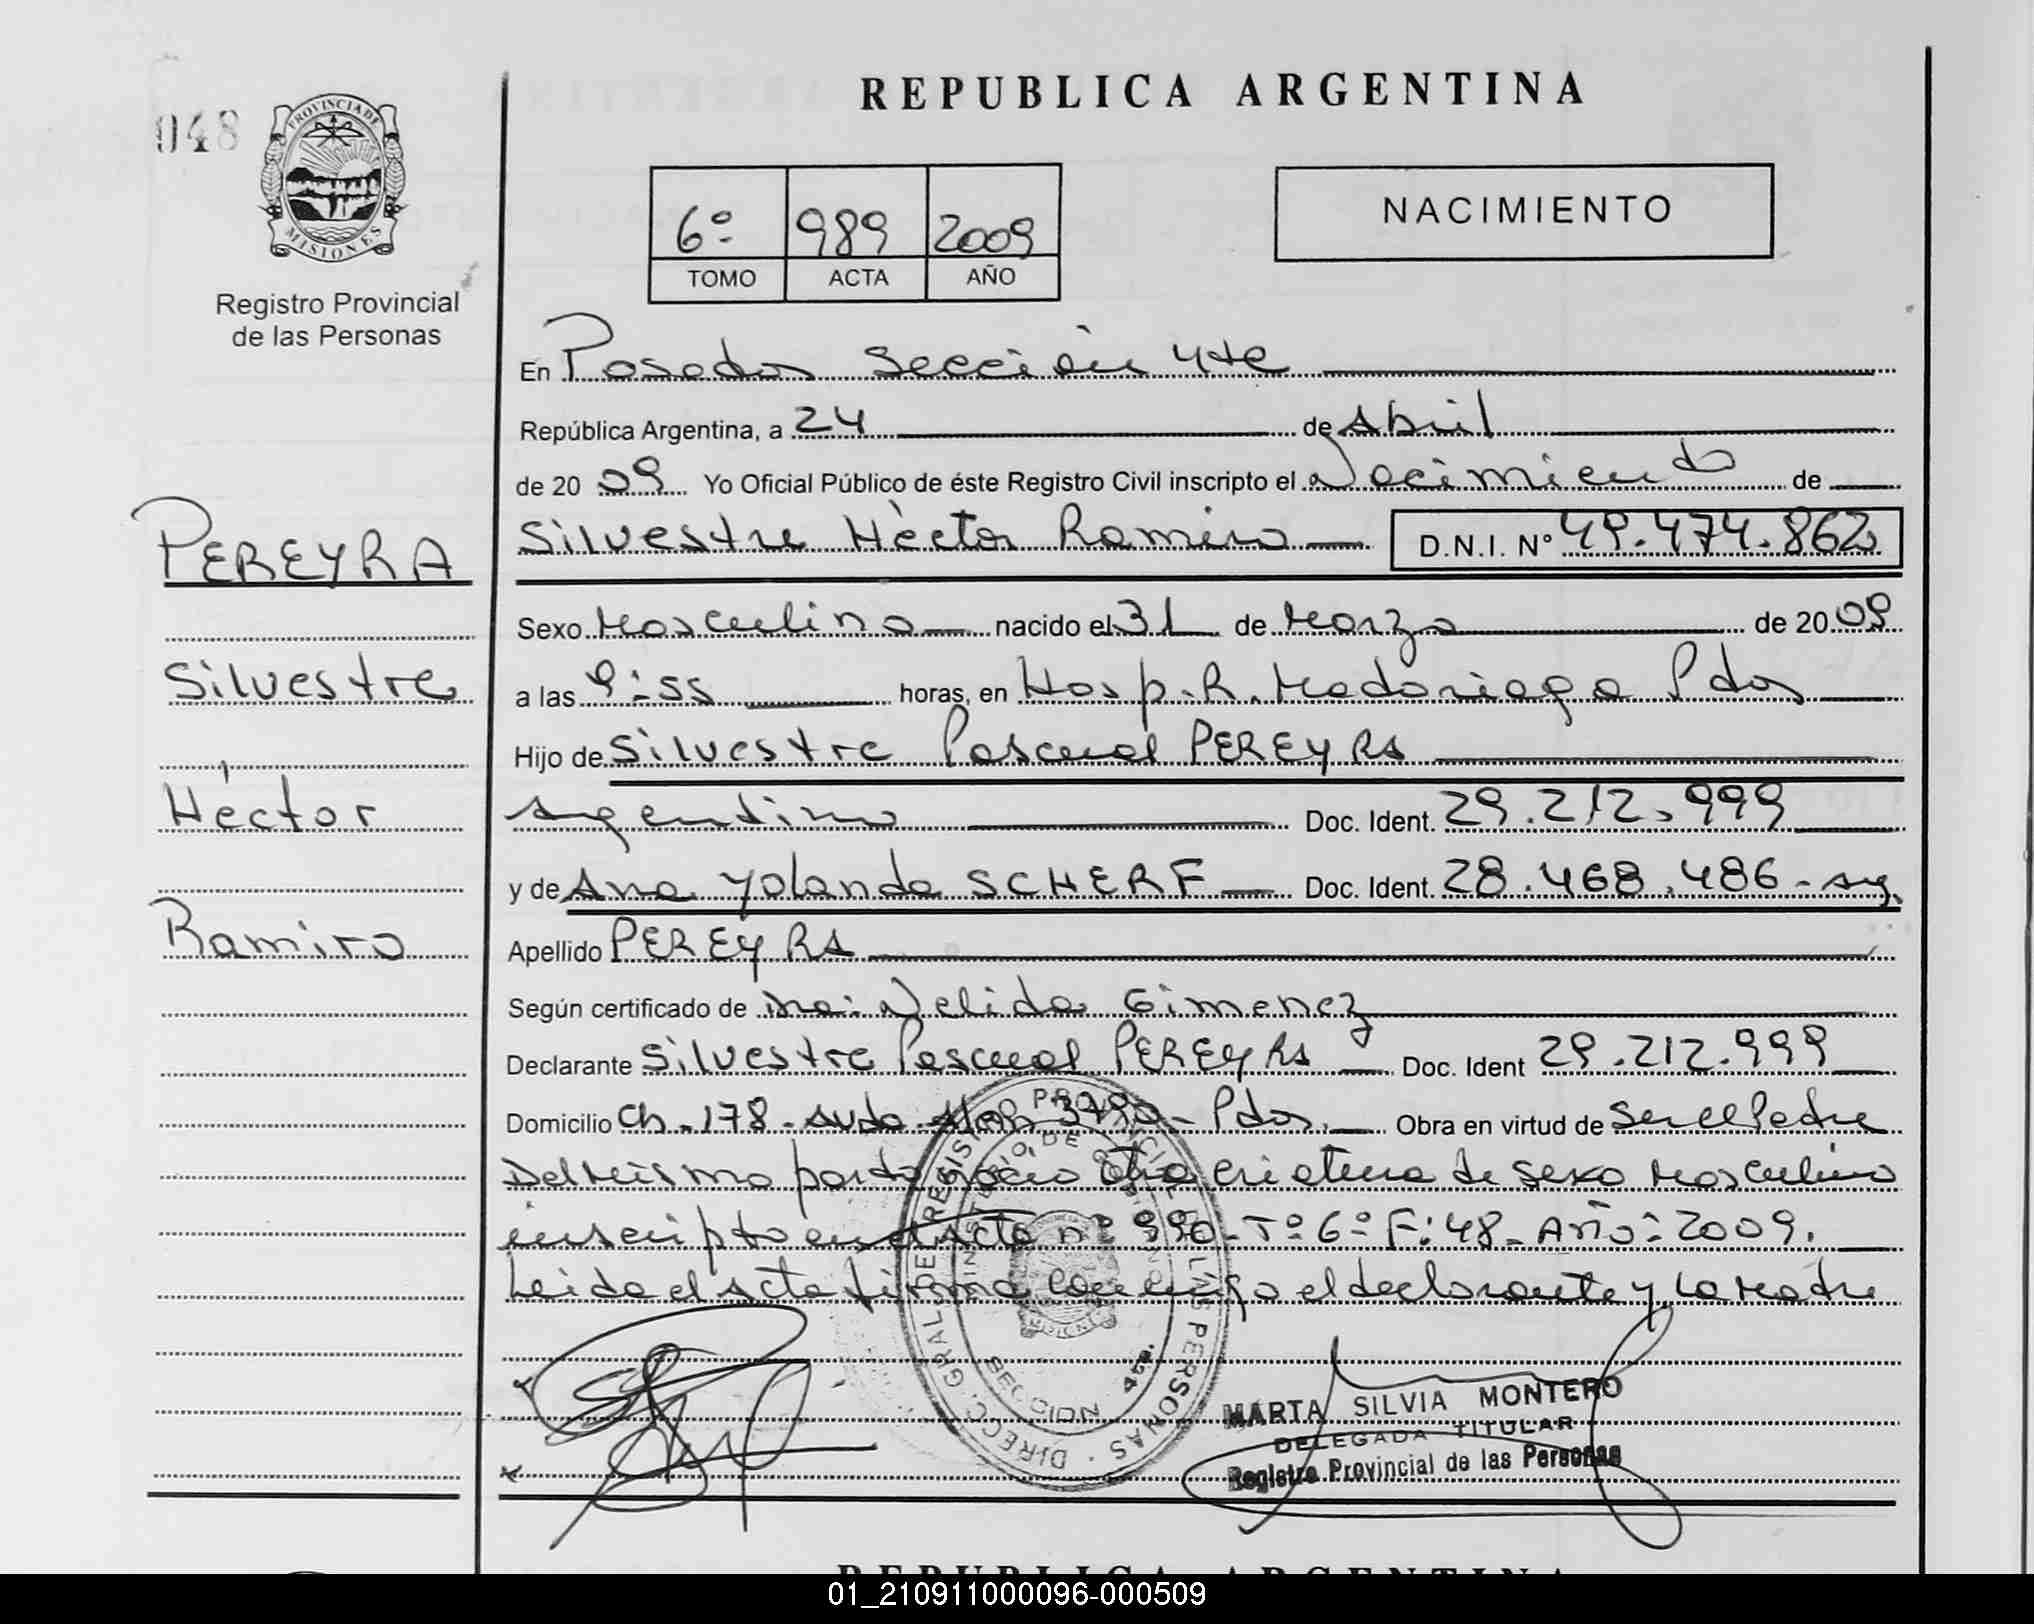 048
PROVINCIA DE
MISIONES
Registro Provincial
de las Personas
PEREYRA
Silvestre
Héctor
Ramiro
REPUBLICA ARGENTINA
6º 989 2009
TOMO ACTA AÑO
NACIMIENTO
En Posadas Sección 4ta
República Argentina, a 24 de Abril
de 2009 Yo Oficial Público de éste Registro Civil inscripto el Nacimiento de
Silvestre Héctor Ramiro D.N.I. Nº 49.474.862
Sexo Masculino nacido el 31 de Marzo de 2009
a las 9:55 horas, en Hosp. R. Madariaga Pdas
Hijo de Silvestre Pascual PEREYRA
Argentino Doc. Ident. 29.212.999
y de Ana Yolanda SCHERF Doc. Ident. 28.468.486 - Arg.
Apellido PEREYRA
Según certificado de Nelida Gimenez
Declarante Silvestre Pascual PEREYRA Doc. Ident 29.212.999
Domicilio Ch. 178 - Avda 3790 - Pdas. Obra en virtud de Ser el Padre
Del Mismo parto nació otra criatura de sexo Masculino
inscripto en Acta nº 990 - Tº 6º F: 48 - Año: 2009.
Leida el Acta firma conmigo el declarante y La Madre
DIRECC. GRAL. DE REGISTRO PROVINCIAL DE LAS PERSONAS
SECCION 4ta.
MISIONES
MARTA SILVIA MONTERO
DELEGADA TITULAR
Registro Provincial de las Personas
REPUBLICA ARGENTINA
01_210911000096-000509